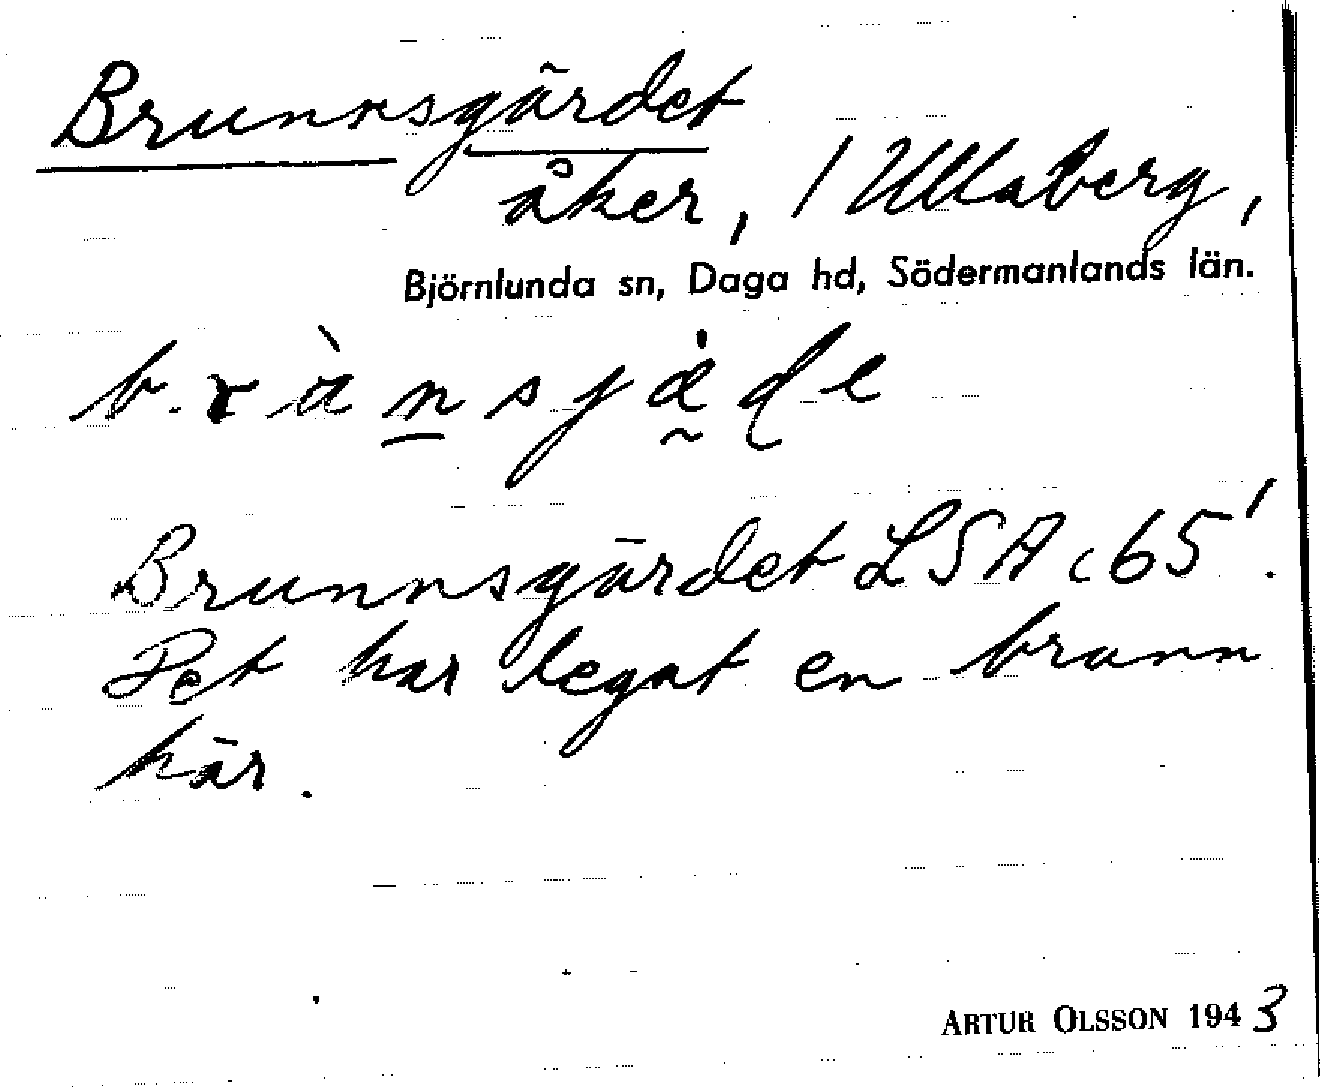 Brunnsgärdet
åker, / Ullaberg,
Björnlunda sn, Daga hd, Södermanlands län.
Brunnsgärdet LSA c65'.
Det har legat en brunn
här.
ARTUR OLSSON 1943